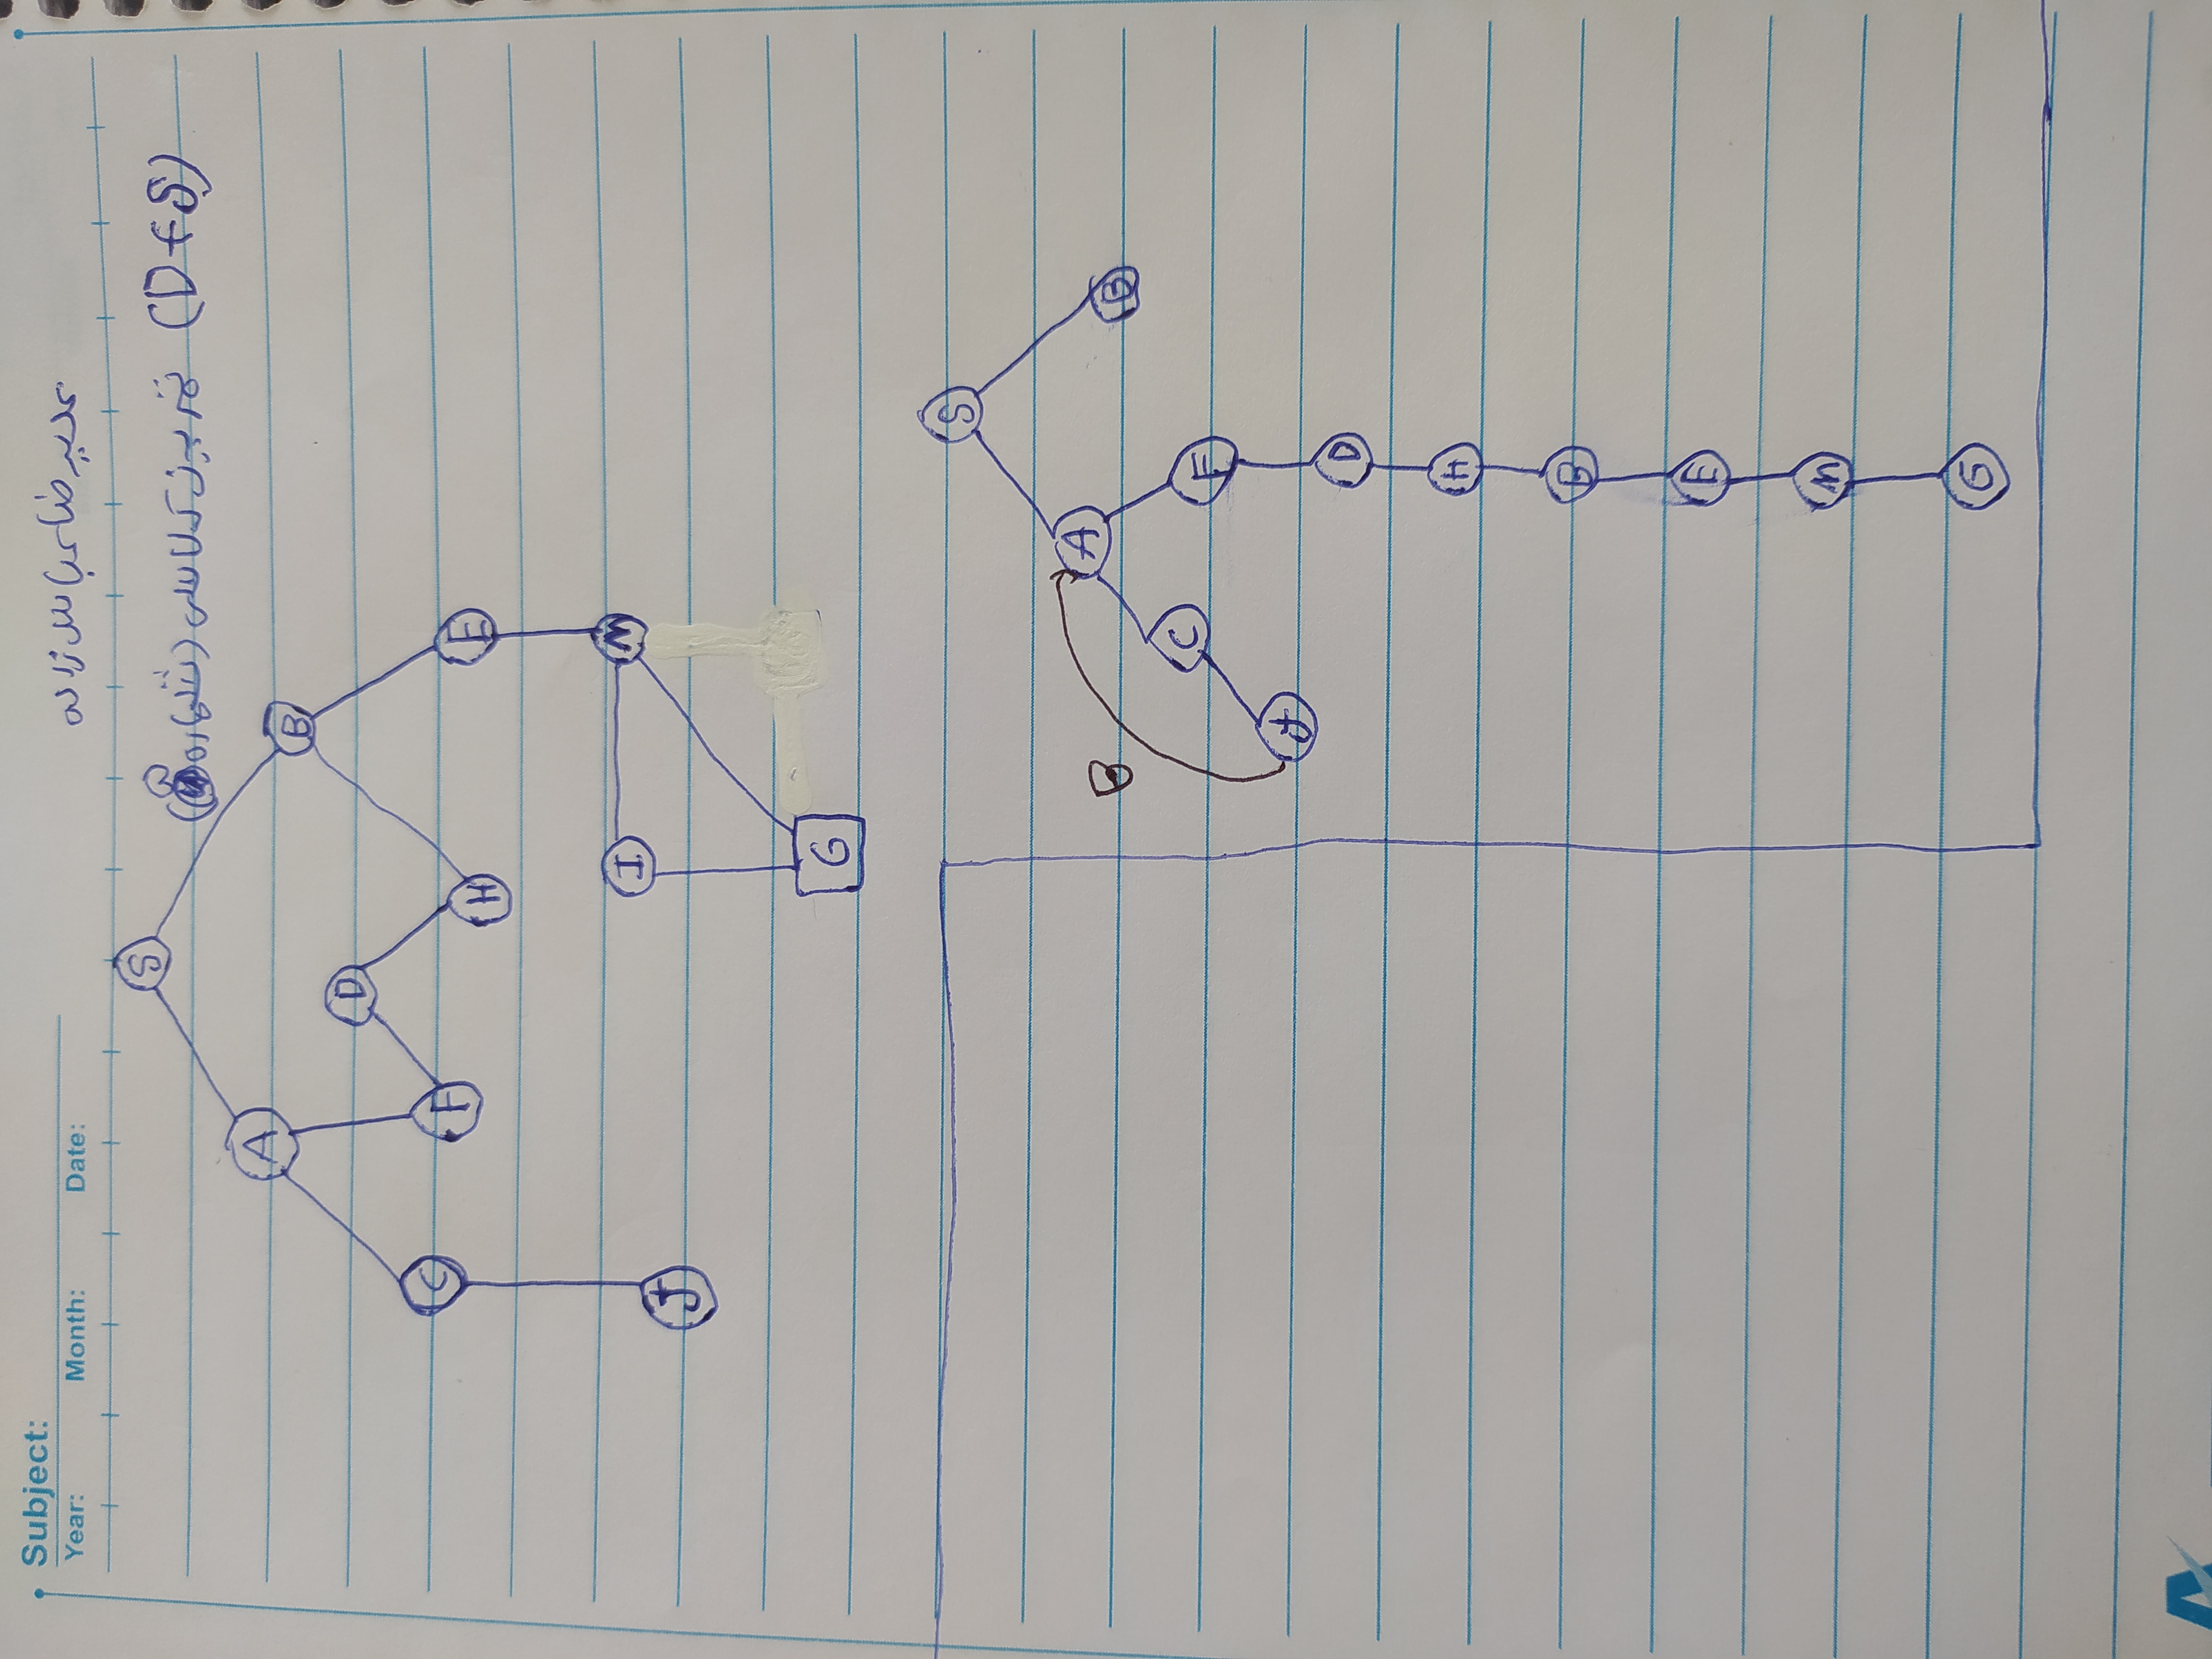 Subject:
Year: Month: Date:
علیرضا عباس زاده
تمرین کلاسی (شماره) (DFS)
S
A B
D
C F H E
I M
J
G
S
A B
B
C F
J
D
H
B
E
M
G